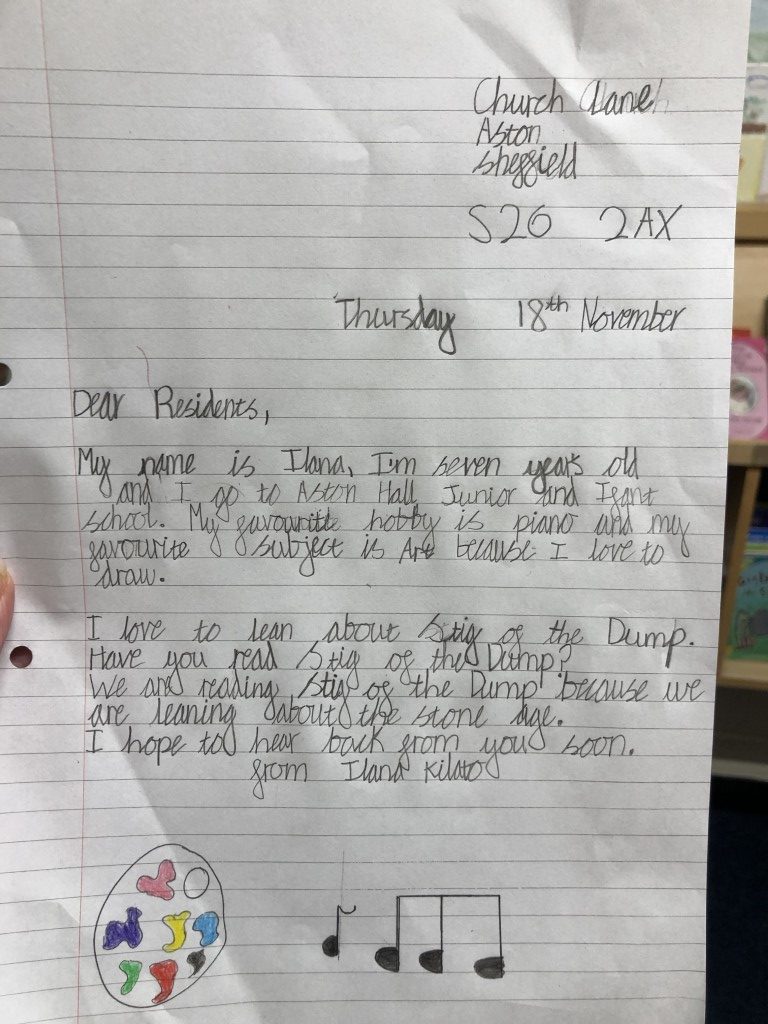 Church Lane
Aston
Sheffield
S26 2AX
Thursday 18th November
Dear Residents,
My name is Ilana, I'm seven years old
and I go to Aston Hall Junior and Ifant
school. My favourite hobby is piano and my
favourite subject is Art because I love to
draw.
I love to lean about Stig of the Dump.
Have you read Stig of the Dump?
We are reading Stig of the Dump because we
are leaning about the stone age.
I hope to hear back from you soon.
from Ilana Kilato